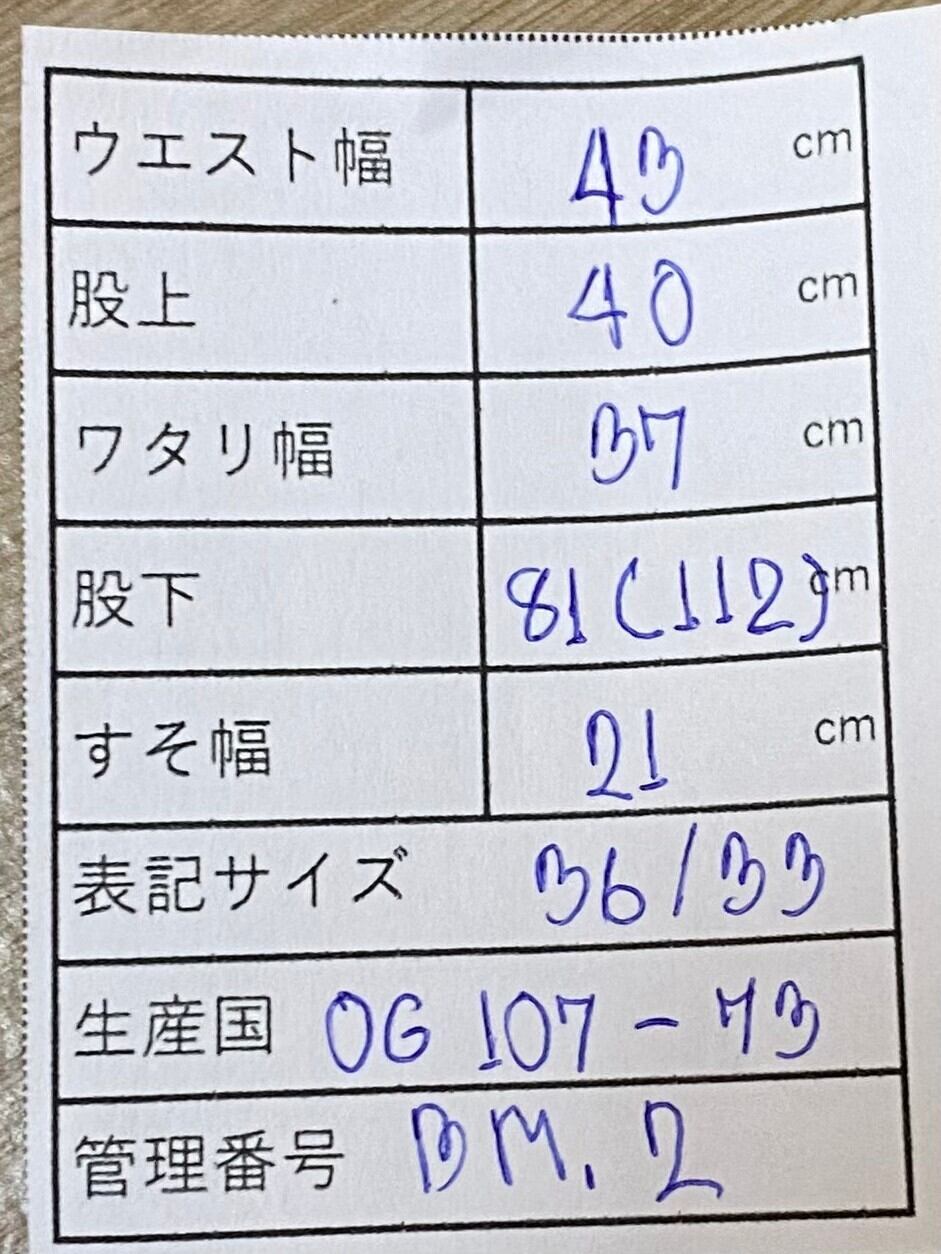 ウエスト幅 43 cm
股上 40 cm
ワタリ幅 37 cm
股下 81(112)cm
すそ幅 21 cm
表記サイズ 36/33
生産国 OG 107-73
管理番号 BM.2